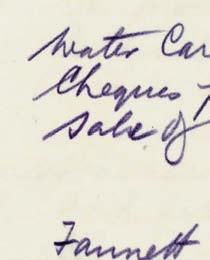 Water Car
Cheques -
Sale of
Fannett